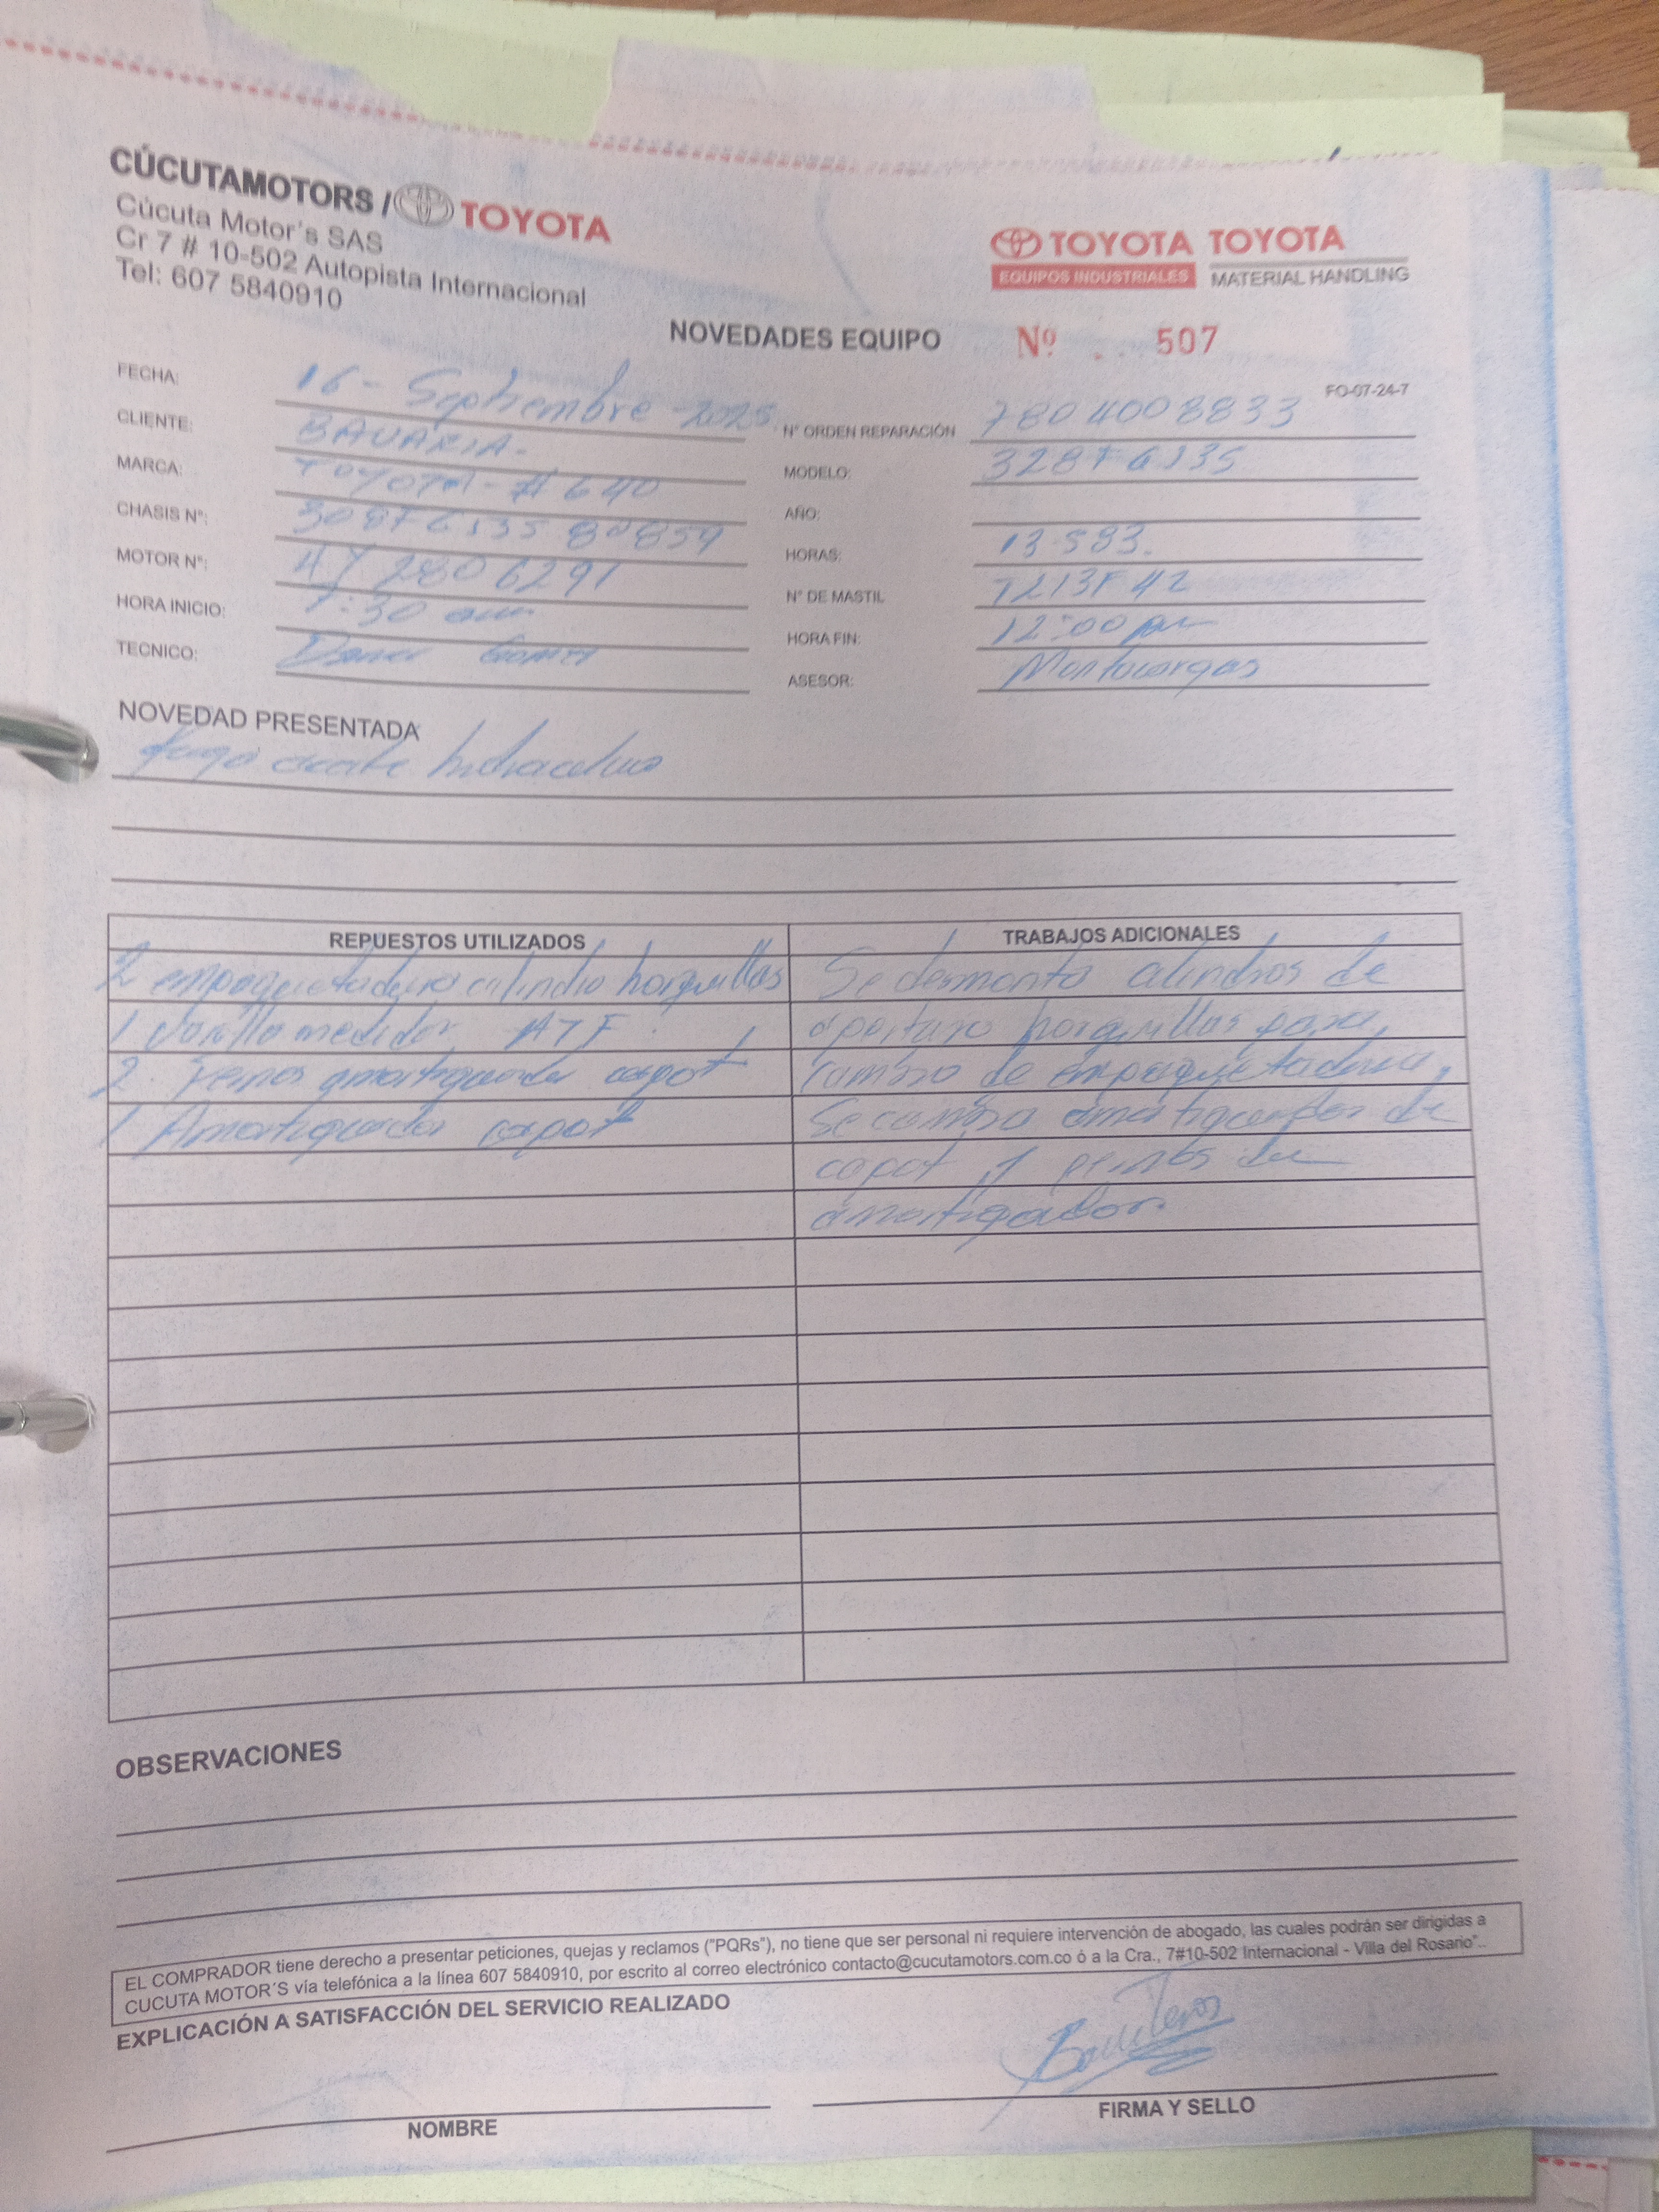 CÚCUTAMOTORS / TOYOTA
Cúcuta Motor's SAS
Cr 7 # 10-502 Autopista Internacional
Tel: 607 5840910
TOYOTA TOYOTA
EQUIPOS INDUSTRIALES MATERIAL HANDLING
NOVEDADES EQUIPO Nº 507
FO-07-24-7
FECHA: 16 - Septiembre - 2025
CLIENTE: BAVARIA. N° ORDEN REPARACIÓN 7804008833
MARCA: TOYOTA - # 640 MODELO:
CHASIS N°: AÑO:
MOTOR N°: 4Y 2806291 HORAS: 13.583.
HORA INICIO: :30 am N° DE MASTIL
TECNICO: HORA FIN: 12:00 pm
ASESOR: Montacargas
NOVEDAD PRESENTADA
fuga aceite hidraulico
REPUESTOS UTILIZADOS TRABAJOS ADICIONALES
2 empaquetadura cilindro horquillas Se desmonta cilindros de
1 Varilla medidor ATF. apertura horquillas para
2 amortiguador capot cambio de empaquetadura,
1 Amortiguador capot Se cambio amortiguador de
capot y de
amortiguador.
OBSERVACIONES
EL COMPRADOR tiene derecho a presentar peticiones, quejas y reclamos ("PQRs"), no tiene que ser personal ni requiere intervención de abogado, las cuales podrán ser dirigidas a
CUCUTA MOTOR´S vía telefónica a la línea 607 5840910, por escrito al correo electrónico contacto@cucutamotors.com.co ó a la Cra., 7#10-502 Internacional - Villa del Rosario"..
EXPLICACIÓN A SATISFACCIÓN DEL SERVICIO REALIZADO
NOMBRE FIRMA Y SELLO